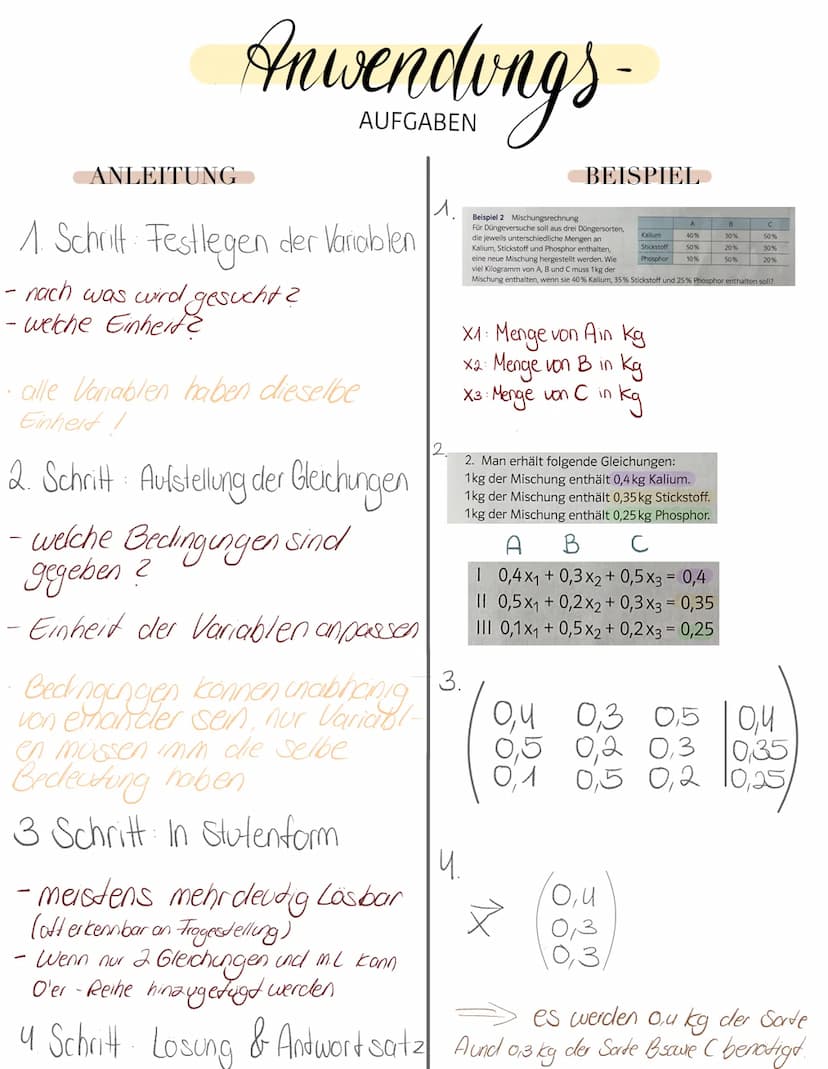 Anwendungs-
AUFGABEN
ANLEITUNG
1. Schritt: Festlegen der Variablen
- nach was wird gesucht?
- welche Einheit?
· alle Variablen haben dieselbe
Einheit!
2. Schritt: Aufstellung der Gleichungen
- welche Bedingungen sind
gegeben?
- Einheit der Variablen anpassen
· Bedingungen können unabhänig
von einander sein, nur Variabl-
en müssen imm die selbe
Bedeutung haben
3 Schritt: In Stufenform
- meistens mehrdeutig Lösbar
(oft erkennbar an Fragestellung)
- Wenn nur 2 Gleichungen und mL kann
0'er-Reihe hinzugefügt werden
4 Schritt. Lösung & Antwortsatz
BEISPIEL
1.
Beispiel 2 Mischungsrechnung
Für Düngeversuche soll aus drei Düngersorten,
die jeweils unterschiedliche Mengen an
Kalium, Stickstoff und Phosphor enthalten,
eine neue Mischung hergestellt werden. Wie
viel Kilogramm von A, B und C muss 1 kg der
Mischung enthalten, wenn sie 40% Kalium, 35% Stickstoff und 25% Phosphor enthalten soll?
A B C
Kalium 40% 30% 50%
Stickstoff 50% 20% 30%
Phosphor 10% 50% 20%
X1: Menge von A in kg
X2: Menge von B in kg
X3: Menge von C in kg
2.
2. Man erhält folgende Gleichungen:
1 kg der Mischung enthält 0,4 kg Kalium.
1 kg der Mischung enthält 0,35 kg Stickstoff.
1 kg der Mischung enthält 0,25 kg Phosphor.
A B C
I 0,4x₁ + 0,3x₂ + 0,5x₃ = 0,4
II 0,5x₁ + 0,2x₂ + 0,3x₃ = 0,35
III 0,1x₁ + 0,5x₂ + 0,2x₃ = 0,25
3.
0,4 0,3 0,5 | 0,4
0,5 0,2 0,3 | 0,35
0,1 0,5 0,2 | 0,25
4.
x⃗ 0,4
0,3
0,3
⇒ es werden 0,4 kg der Sorte
A und 0,3 kg der Sorte B sowie C benötigt.